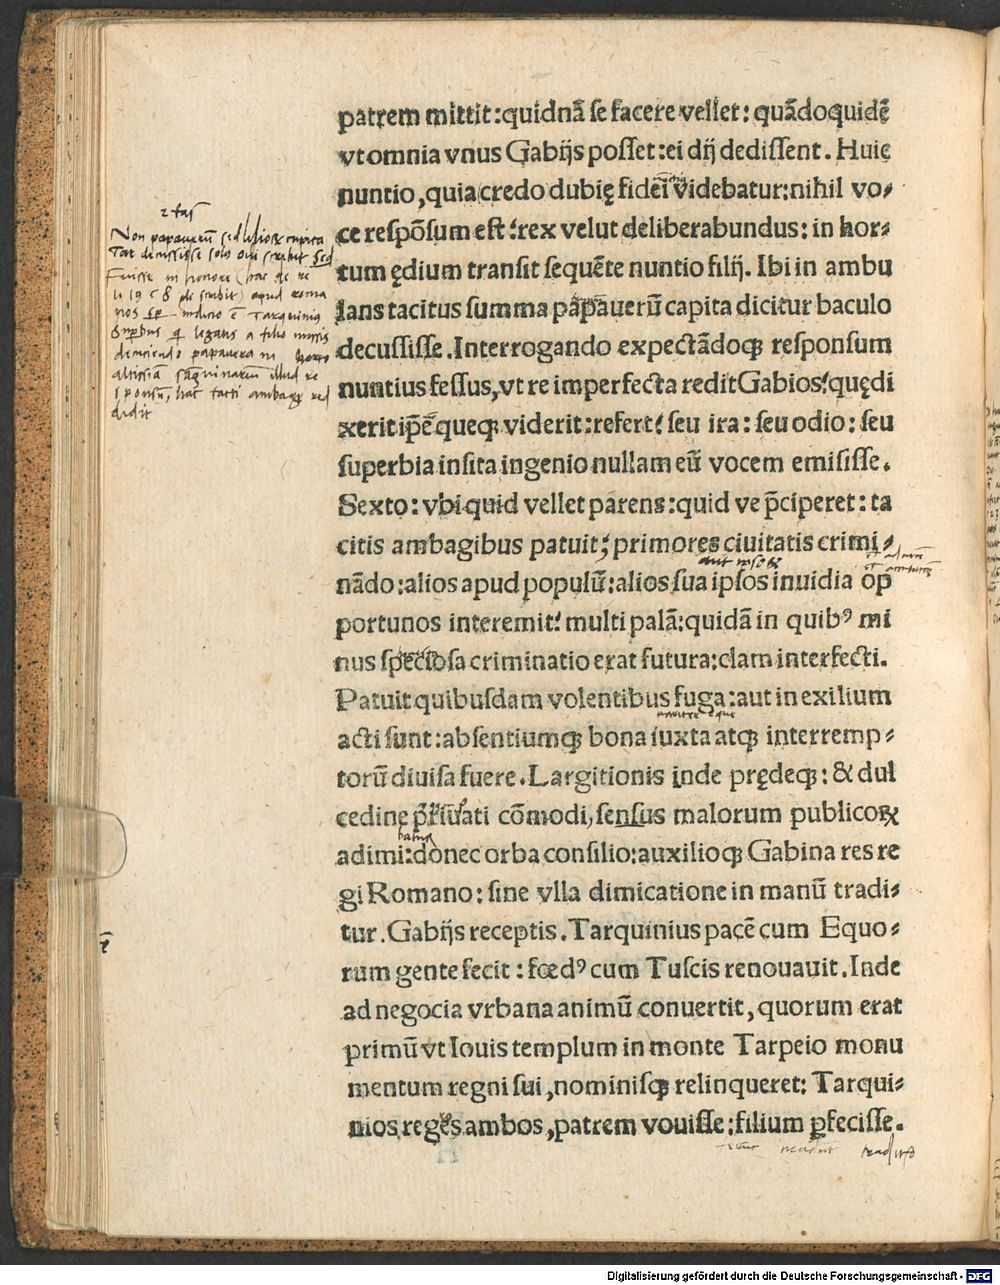 patrem mittit:quidnã ſe facere vellet: quãdoquidẽ
vt omnia vnus Gabijs poſſet:ei dij dediſſent. Huic
nuntio,quia credo dubię fidei videbatur:nihil vo⸗
ce reſpõſum eſt:rex velut deliberabundus: in hor⸗
tum ędium tranſit ſequẽte nuntio filij. Ibi in ambu
lans tacitus ſumma papauerũ capita dicitur baculo
decuſſiſſe.Interrogando expectãdoqꝫ reſponſum
nuntius feſſus,vt re imperfecta redit Gabios:quę di
xerit ipẽ queqꝫ viderit:refert: ſeu ira: ſeu odio: ſeu
ſuperbia inſita ingenio nullam eũ vocem emiſiſſe.
Sexto: vbi quid vellet parens:quid ve p̃ciperet: ta
citis ambagibus patuit; primores ciuitatis crimi⸗
nãdo:alios apud populũ:alios ſua ipſos inuidia op
portunos interemit: multi palã:quidã in quibꝰ mi
nus ſpecioſa criminatio erat futura:clam interfecti.
Patuit quibuſdam volentibus fuga:aut in exilium
acti ſunt:abſentiumqꝫ bona iuxta atqꝫ interremp⸗
torũ diuiſa fuere.Largitionis inde prędeqꝫ: & dul
cedine priuati cõmodi,ſenſus malorum publicoꝝ
adimi:donec orba conſilio:auxilioqꝫ Gabina res re
gi Romano: ſine vlla dimicatione in manũ tradi⸗
tur.Gabijs receptis.Tarquinius pacẽ cum Equo⸗
rum gente fecit: fœdꝰ cum Tuſcis renouauit.Inde
ad negocia vrbana animũ conuertit,quorum erat
primũ vt Iouis templum in monte Tarpeio monu
mentum regni ſui,nominiſqꝫ relinqueret: Tarqui⸗
nios reges ambos,patrem vouiſſe:filium ꝑfeciſſe.
Non papauerũ sed lilioꝝ capita
altissiã sãguinariũ illud re
sponsũ, hac tacti ambage red
didit
Digitalisierung gefördert durch die Deutsche Forschungsgemeinschaft - DFG